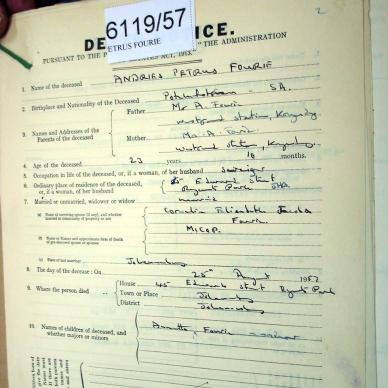 6119/57
ETRUS FOURIE
2
DE ICE.
PURSUANT TO THE ADMINISTRATION ACT, 1913."
1. Name of the deceased ANDRIES PETRUS FOURIE
2. Birthplace and Nationality of the Deceased Potchefstroom - SA.
3. Names and Addresses of the Parents of the deceased
Father Mr A. Fourie
Mother Mrs A. Fourie
4. Age of the deceased 23 years 10 months.
5. Occupation in life of the deceased, or, if a woman, of her husband
6. Ordinary place of residence of the deceased, or, if a woman, of her husband 45 Edward Street
Regents Park JHB.
7. Married or unmarried, widower or widow married
(a) Name of surviving spouse (if any), and whether married in community of property or not
Cornelia Elizabeth Jacoba
Fourie
M.I.C.O.P.
(b) Name or Names and approximate date of death of pre-deceased spouse or spouses
(c) Place of last marriage Johannesburg
8. The day of the decease: On 25th August 1957
9. Where the person died
House 45 Edward Street Regents Park
Town or Place Johannesburg
District Johannesburg
10. Names of children of deceased, and whether majors or minors
Annette Fourie minor